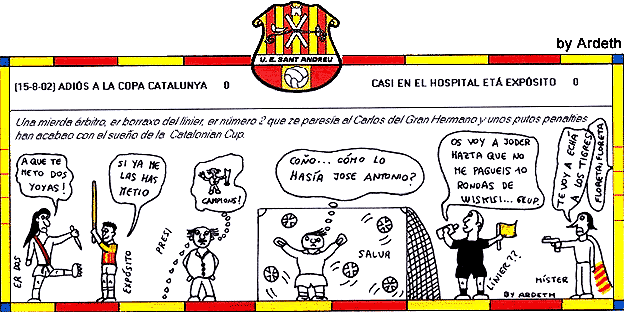 by Ardeth
U. E. SANT ANDREU
(15-8-02) ADIÓS A LA COPA CATALUNYA 0
CASI EN EL HOSPITAL ETÁ EXPÓSITO 0
Una mierda árbitro, er borraxo del linier, er número 2 que ze paresía al Carlos del Gran Hermano y unos putos penalties
han acabao con el sueño de la Catalonian Cup.
A QUE TE
METO DOS
YOYAS!
SI YA ME
LAS HAS
METIO
CAMPIONS!
COÑO... CÓMO LO
HASÍA JOSE ANTONIO?
OS VOY A JODER
HAZTA QUE NO
ME PAGUEIS 10
RONDAS DE
WISKISI... GRUP.
TE VOY A ECHÁ
A LOS TIGRES
FLORETA, FLORETA
ER DOS
EXPÓSITO
PRESI
SALVA
LINIER??
MÍSTER
BY ARDETH